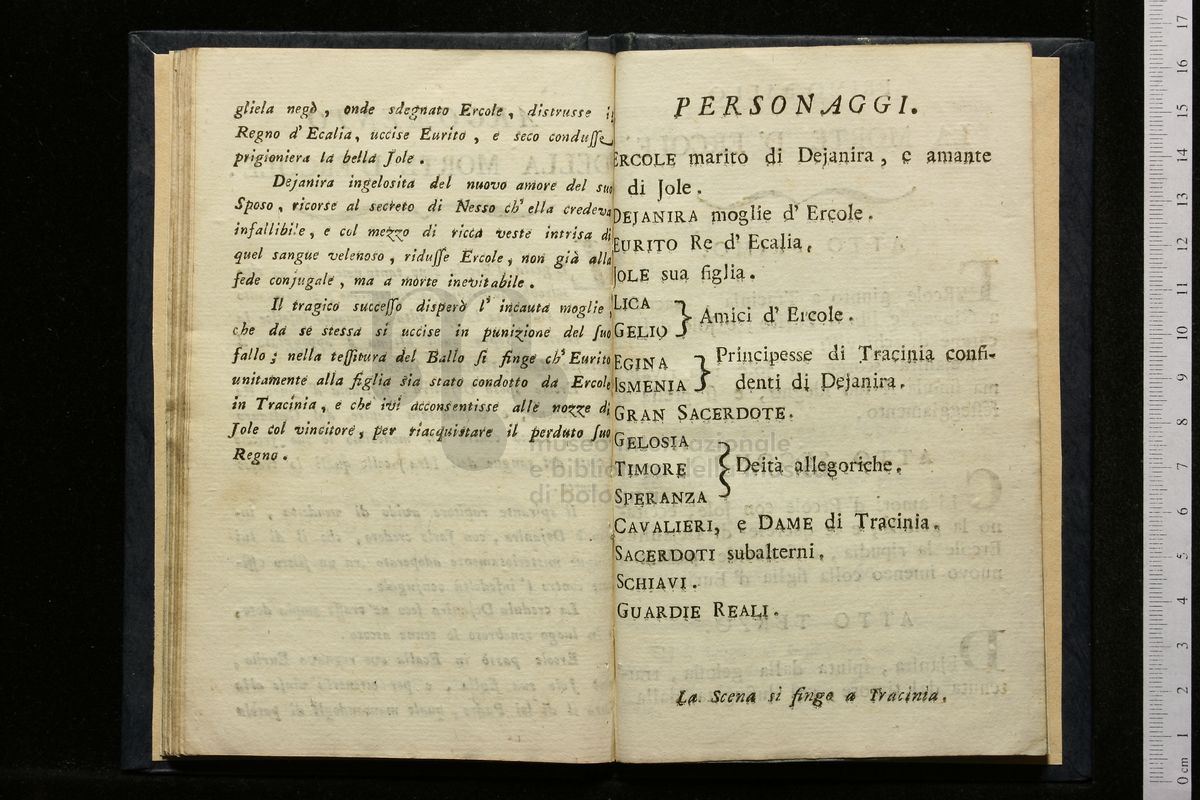 gliela negò, onde sdegnato Ercole, distrusse il
Regno d' Ecalia, uccise Eurito, e seco condusse
prigioniera la bella Jole.
Dejanira ingelosita del nuovo amore del suo
Sposo, ricorse al secreto di Nesso ch' ella credeva
infallibile, e col mezzo di ricca veste intrisa di
quel sangue velenoso, ridusse Ercole, non già alla
fede conjugale, ma a morte inevitabile.
Il tragico successo disperò l' incauta moglie,
che da se stessa si uccise in punizione del suo
fallo; nella tessitura del Ballo si finge ch' Eurito
unitamente alla figlia sia stato condotto da Ercole
in Tracinia, e che ivi acconsentisse alle nozze di
Jole col vincitore, per riacquistare il perduto suo
Regno.
PERSONAGGI.
ERCOLE marito di Dejanira, e amante
di Jole.
DEJANIRA moglie d' Ercole.
EURITO Re d' Ecalia.
JOLE sua figlia.
LICA
GELIO } Amici d' Ercole.
EGINA
ISMENIA } Principesse di Tracinia confi-
denti di Dejanira.
GRAN SACERDOTE.
GELOSIA
TIMORE } Deità allegoriche.
SPERANZA
CAVALIERI, e DAME di Tracinia.
SACERDOTI subalterni.
SCHIAVI.
GUARDIE REALI.
La Scena si finge a Tracinia.
museo internazionale
e biblioteca della musica
di bologna
17
16
15
14
13
12
11
10
9
8
7
6
5
4
3
2
1
0 cm